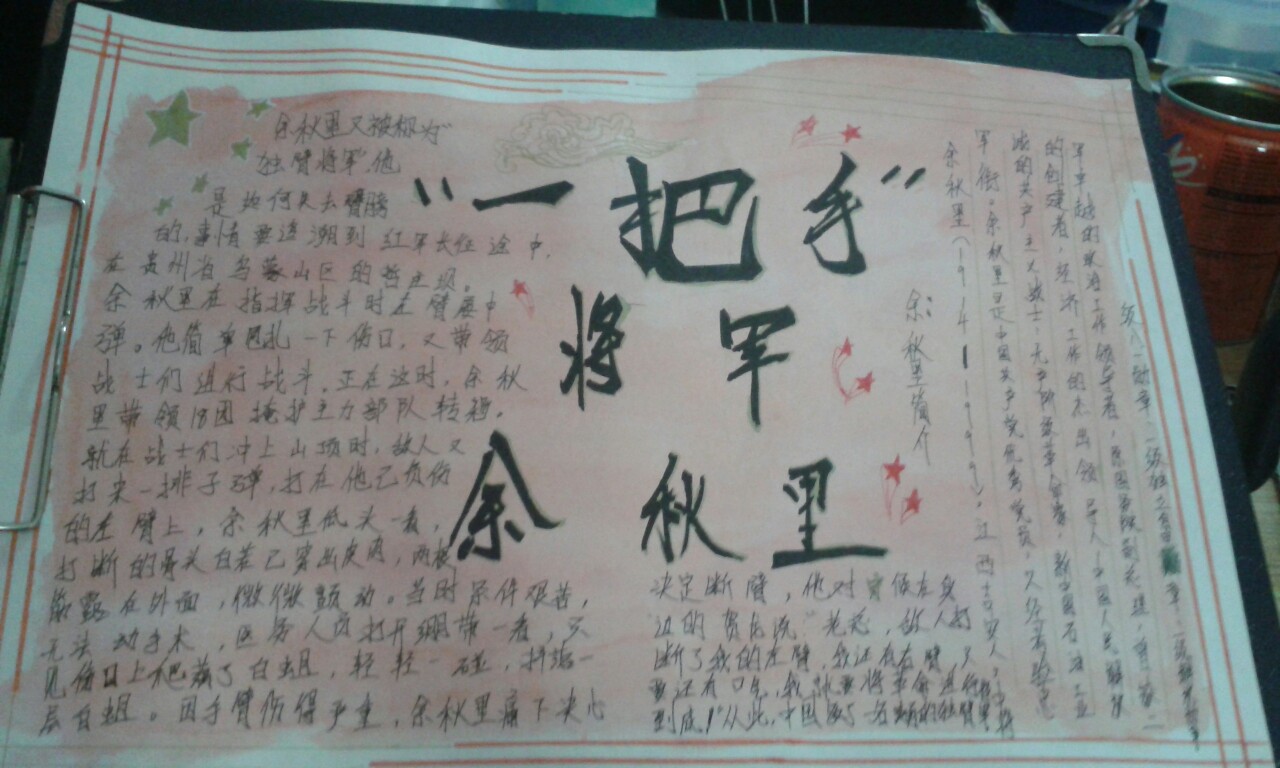 “一把手”
将军
余秋里
余秋里又被称为“
独臂将军”,他
是如何失去臂膀
的,事情要追溯到红军长征途中,
在贵州省乌蒙山区的哲庄坝。
余秋里在指挥战斗时左臂屡中
弹。他简单包扎一下伤口,又带领
战士们进行战斗。正在这时,余秋
里带领18团掩护主力部队转移。
就在战士们冲上山顶时,敌人又
打来一排子弹,打在他已负伤
的左臂上,余秋里低头一看,
打断的骨头白茬已穿出皮肉,两根
筋露在外面,微微颤动。当时条件艰苦,
无法动手术,医务人员打开绷带一看,只
见伤口上爬满了白蛆,轻轻一碰,抖落一
层白蛆。因手臂伤得严重,余秋里痛下决心
决定断臂,他对守候在身
边的贺龙说:“老总,敌人打
断了我的左臂,我还有右臂,只
要还有口气,我就要将革命进行
到底!”从此,中国
余秋里简介
余秋里(1914-1999),江西吉安人,
军衔。余秋里是中国共产党优秀党员,久经考验忠
诚的共产主义战士,无产阶级革命家,新中国石油工业
的创建者,经济工作的杰出领导人,中国人民解放
军卓越的政治工作领导者,原国务院副总理,
级八一勋章,二级独立自由勋章,一级解放勋章